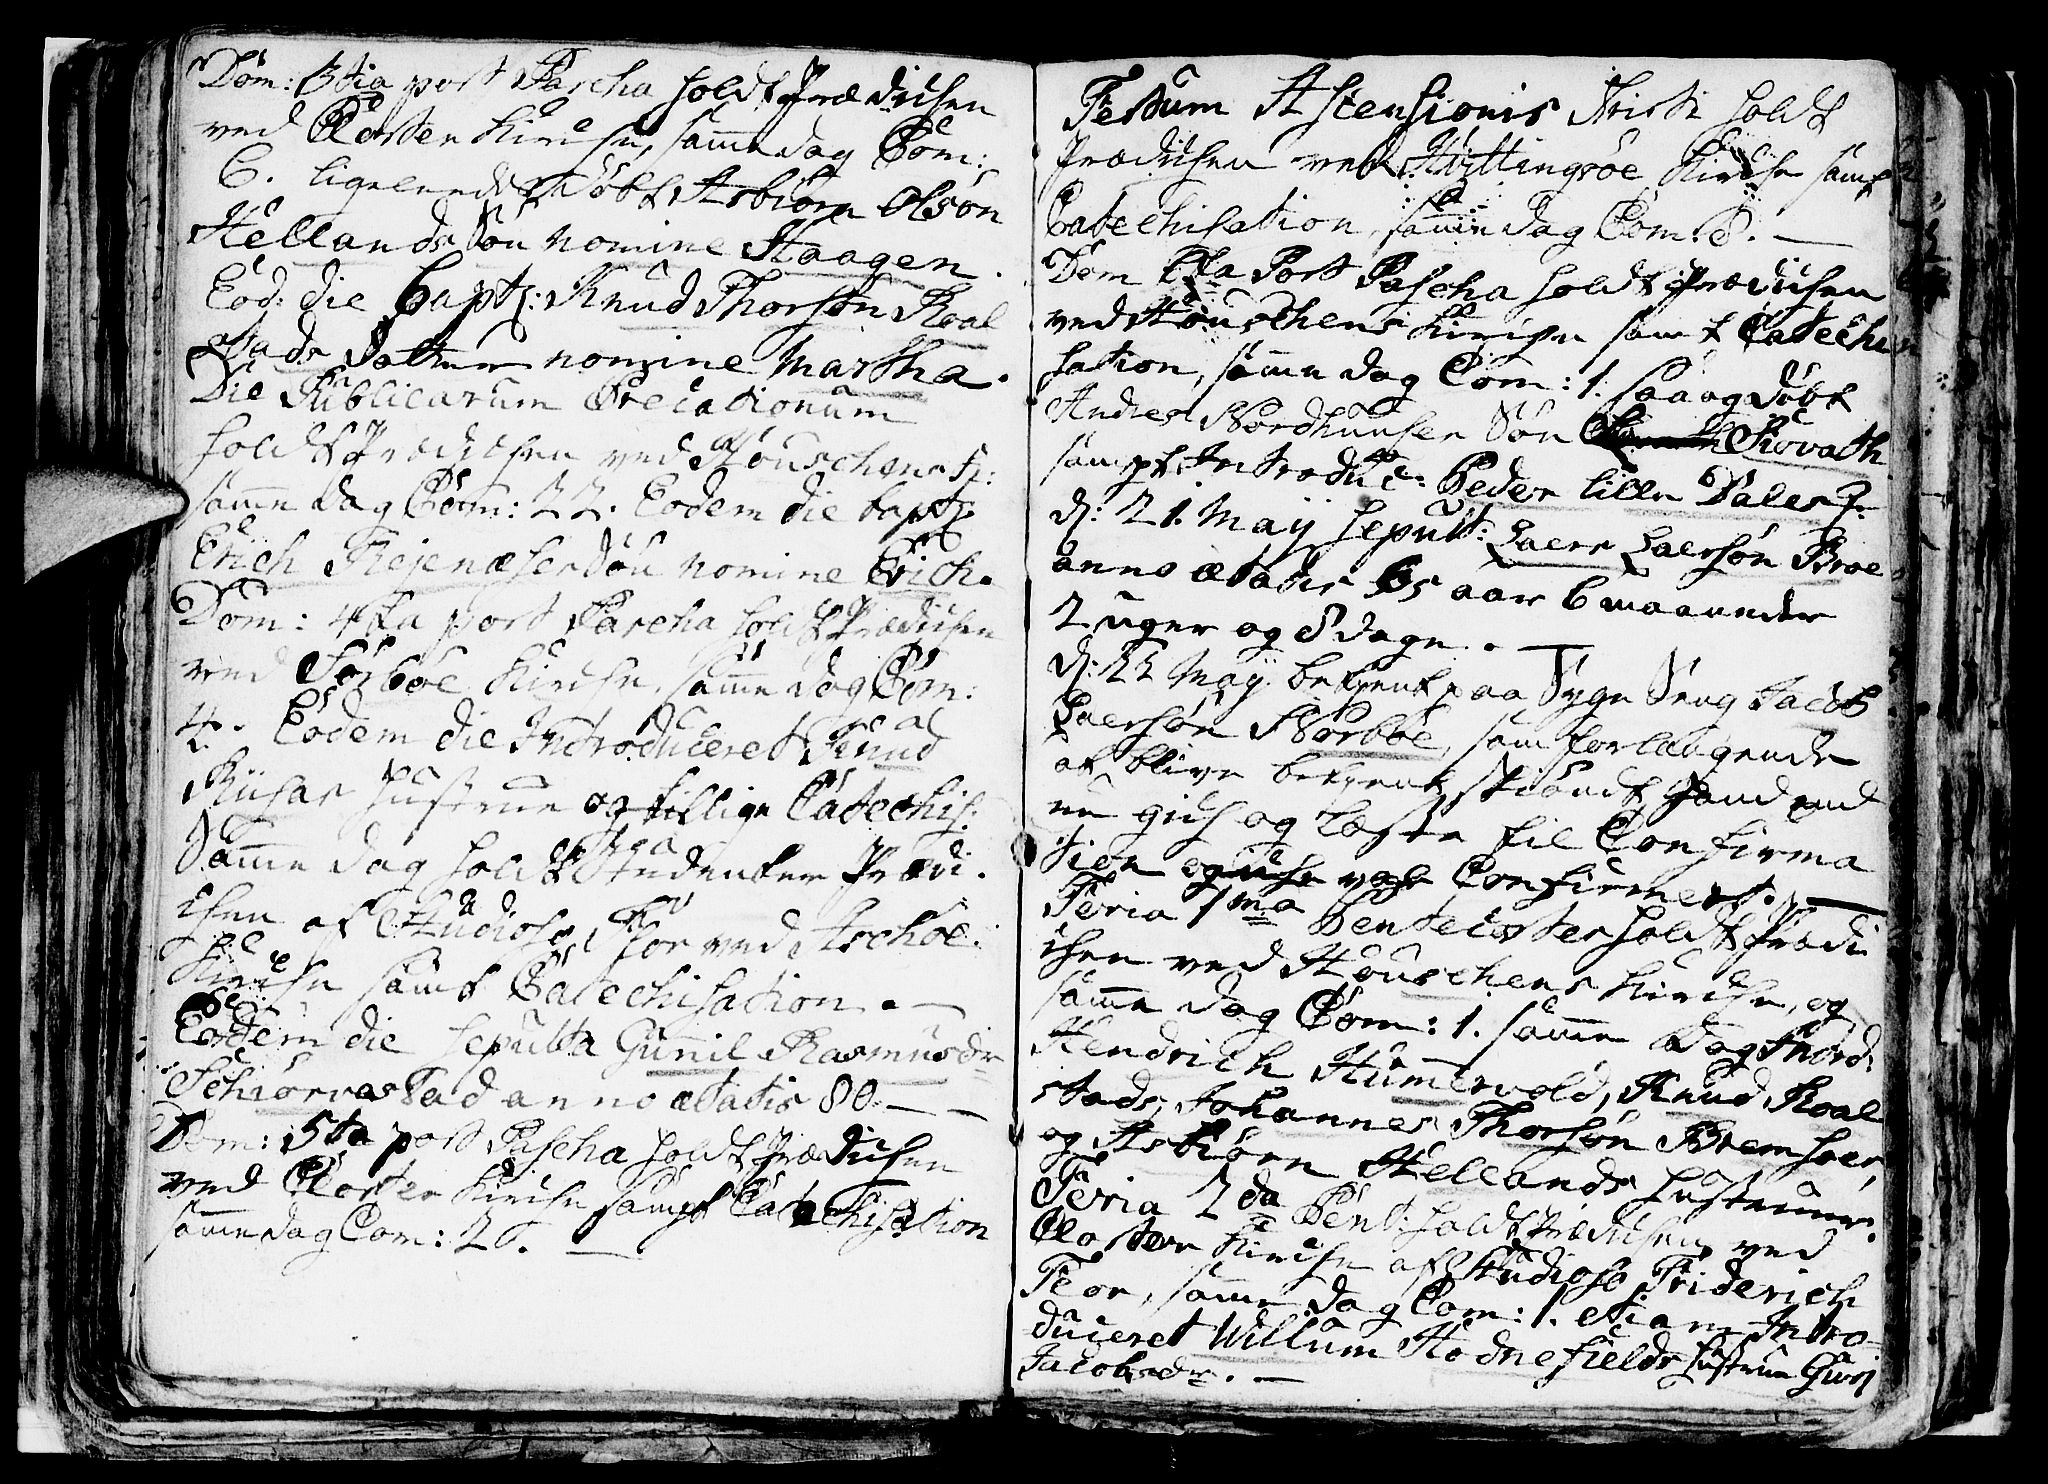 Dom: 3tia post Pascha holdt Prædichen
ved Closter Kirche, samme dag Com:
6. ligeleedes Døbt Asbiørn Olsøn
Hellands Søn nomine Haagen.
Eod: die bapt: Knud Thorsøn Roal
stads Datter nomine Martha.
Die Publicarum Precationum
holdt Prædichen ved Houschens K:
samme dag Com: 22. Eodem die bapt:
Erich Rejenæses Søn nomine Erich.
Dom: 4ta post Pascha holdt Prædichen
ved Sørbøe Kirche, samme dag Com:
4. Eodem die Introduceret Knud
Hustrue og tillige Catechis:
Samme dag holdt Studenter Prædi
chen af Studioso Feor ved Aschøe
Kirche samt Catechisation. —
Eodem die sepulta Gunnil Rasmusdr
Schiørvastad anno ætatis 80. —
Dom: 5ta post Pascha holdt Prædichen
ved Closter Kirche sampt Catechisation
samme dag Com: 26. —
Festum Ascensionis Kristi holdt
Prædichen ved Hvittingsøe Kirche samt
Catechisation, samme dag Com: 8. —
Dom 6ta Post Pascha holdt Prædichen
ved Houschens Kirche samt Catechi
sation, samme dag Com: 1. saa og døbt
Andres Nordhuuses Søn
sampt Introduc: Peder lille Dales
d: 21. Maij sepult: Laers Laersøn Broe
anno ætatis 65 aar 6 maaneder
2 uger og 8 dage. —
d: 22 Maij betient paa Syge Seng Jacob
Laersøn Norbøe, som forlangende
at blive betient, skiøndt hand end
nu gich og læste til Confirma
tion og iche var Confirmert. —
Feria 1ma Pentecostes holdt Prædi
chen ved Houschens Kirche, og
samme dag Com: 1. samme Dag Introd:
Hendrich Hummervold, Knud Roal
stads, Johannes Thorsøn Bremsoer,
og Asbiørn Hellands Hustruer.
Feria 2da Pent: holdt Prædichen ved
Closter Kirche af Studioso Friderich
Feor, samme dag Com: 1. etiam Intro
duceret Willum Hodnefields Hustrue Guri
Jacobsdr. —